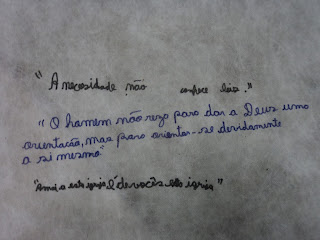 "A necosidade não conhece leis."
"O homem não reza para dar a Deus uma
orientação, mas para orientar-se devidamente
a si mesmo"
"Amai a esta igreja é de vocês